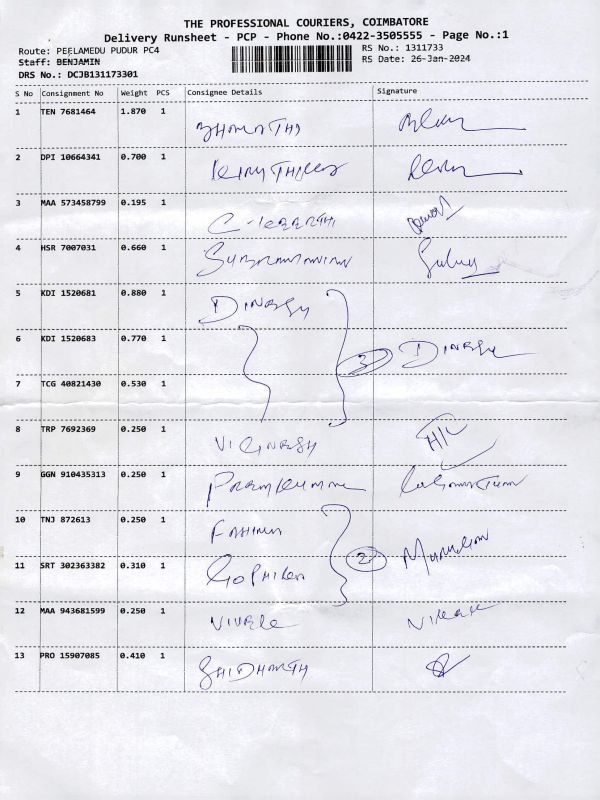 THE PROFESSIONAL COURIERS, COIMBATORE
Delivery Runsheet - PCP - Phone No.:0422-3505555 - Page No.:1
Route: PEELAMEDU PUDUR PC4 RS No.: 1311733
Staff: BENJAMIN RS Date: 26-Jan-2024
DRS No.: DCJB131173301
S No Consignment No Weight PCS Consignee Details Signature
1 TEN 7681464 1.870 1
2 DPI 10664341 0.700 1
3 MAA 573458799 0.195 1
4 HSR 7007031 0.660 1
5 KDI 1520681 0.880 1 DINESH
6 KDI 1520683 0.770 1 3 DINESH
7 TCG 40821430 0.530 1
8 TRP 7692369 0.250 1 VIGNESH H/L
9 GGN 910435313 0.250 1 PREMKUMAR
10 TNJ 872613 0.250 1
11 SRT 302363382 0.310 1 2 Murugan
12 MAA 943681599 0.250 1 VIVEK
13 PRO 15907085 0.410 1 SHIDHARTH